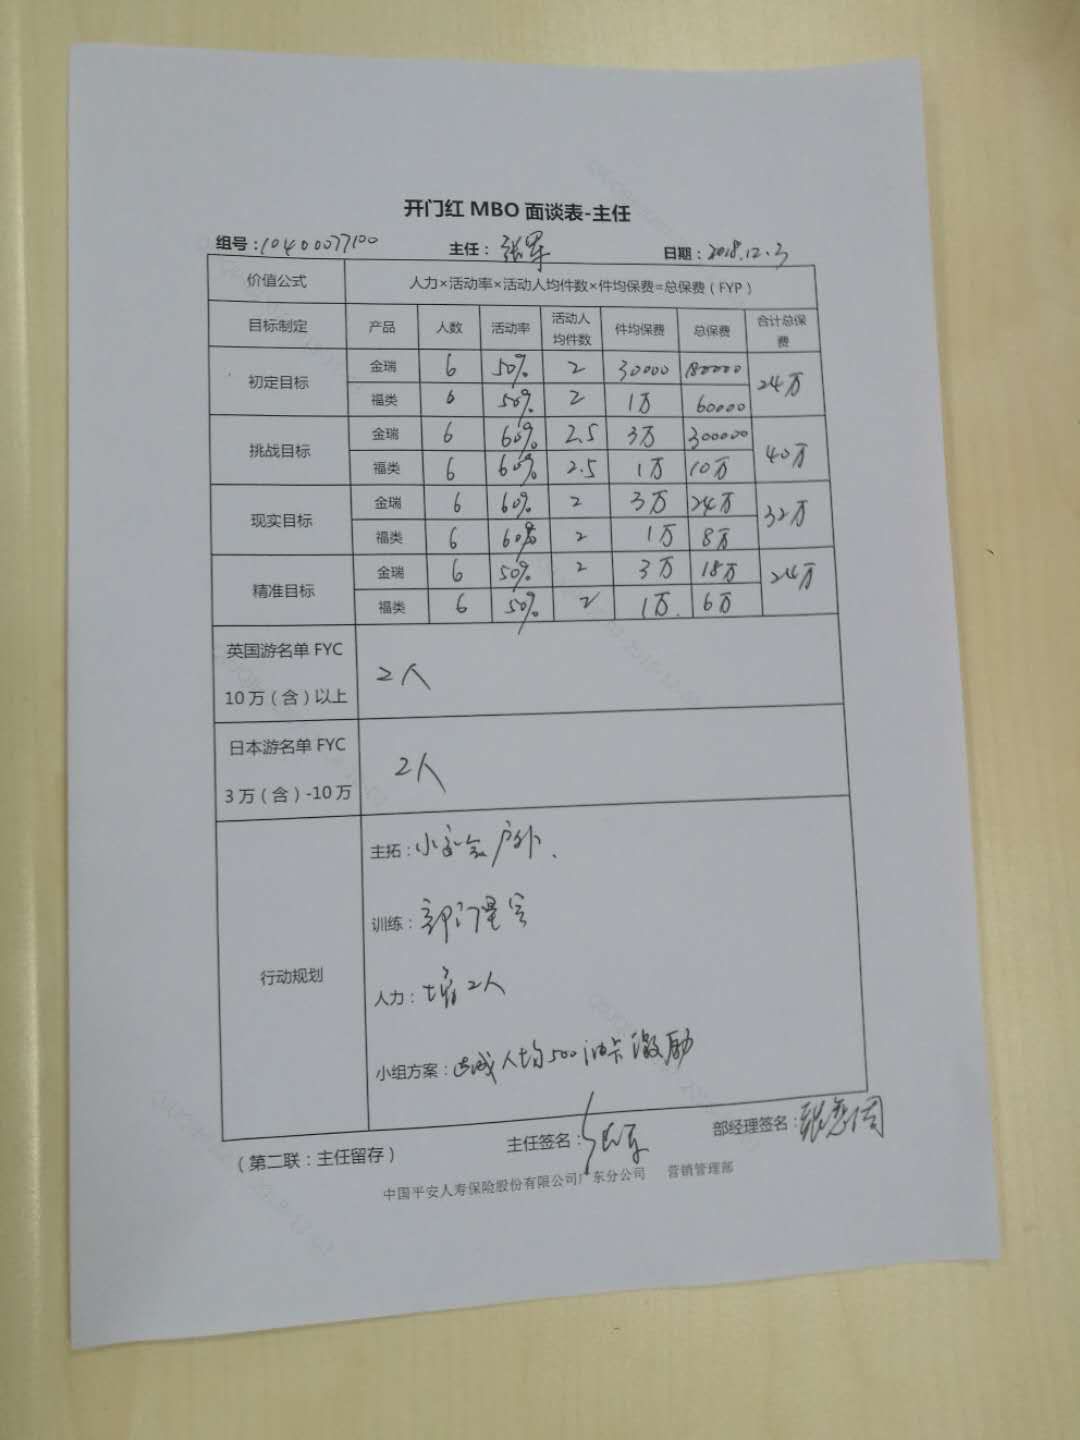 开门红 MBO 面谈表-主任
组号：10400077100 主任：张军 日期：2018.12.3
价值公式 人力×活动率×活动人均件数×件均保费=总保费（FYP）
目标制定 产品 人数 活动率 活动人均件数 件均保费 总保费 合计总保费
初定目标 金瑞 6 50% 2 30000 180000 24万
福类 6 50% 2 1万 60000
挑战目标 金瑞 6 60% 2.5 3万 300000 40万
福类 6 60% 2.5 1万 10万
现实目标 金瑞 6 60% 2 3万 24万 32万
福类 6 60% 2 1万 8万
精准目标 金瑞 6 50% 2 3万 18万 24万
福类 6 50% 2 1万. 6万
英国游名单 FYC
10万（含）以上
2人
日本游名单 FYC
3万（含）-10万
2人
行动规划
主拓：小交会 户外.
训练：部门
人力：增2人
小组方案：达成人均500油卡激励
主任签名：张军 部经理签名：张
（第二联：主任留存）
中国平安人寿保险股份有限公司广东分公司 营销管理部